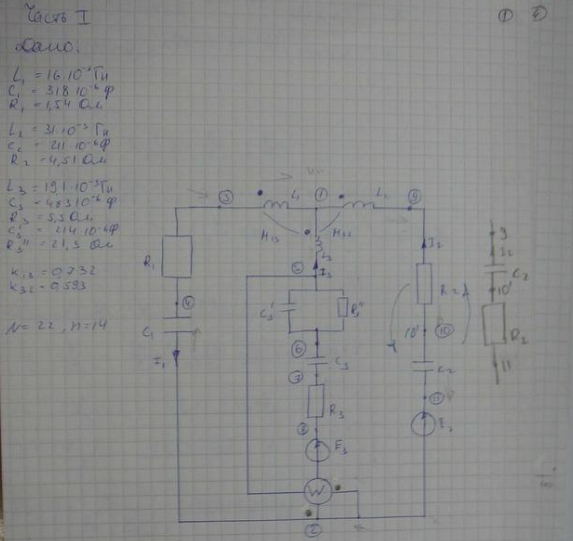 Часть I
① ②
Дано:
L₁ = 16·10⁻³ Гн
C₁ = 318·10⁻⁶ Ф
R₁ = 1,54 Ом
L₂ = 31·10⁻³ Гн
C₂ = 211·10⁻⁶ Ф
R₂ = 4,51 Ом
L₃ = 191·10⁻³ Гн
C₃ = 483·10⁻⁶ Ф
R₃ = 5,5 Ом
C₃' = 214·10⁻⁶ Ф
R₃'' = 21,3 Ом
K₁₃ = 0,732
K₃₂ = 0,593
N = 22, n = 14
③ L₁ ① L₂ ⑨
M₁₃ M₃₂
L₃
⑤ I₃
R₁
C₃' R₃''
④
C₁
I₁
⑥ C₃
⑦
R₃
⑧
E₃
W
②
I₂
R₂
10' ⑩
C₂
⑪
E₂
9
I₂
C₂
10'
R₂
11